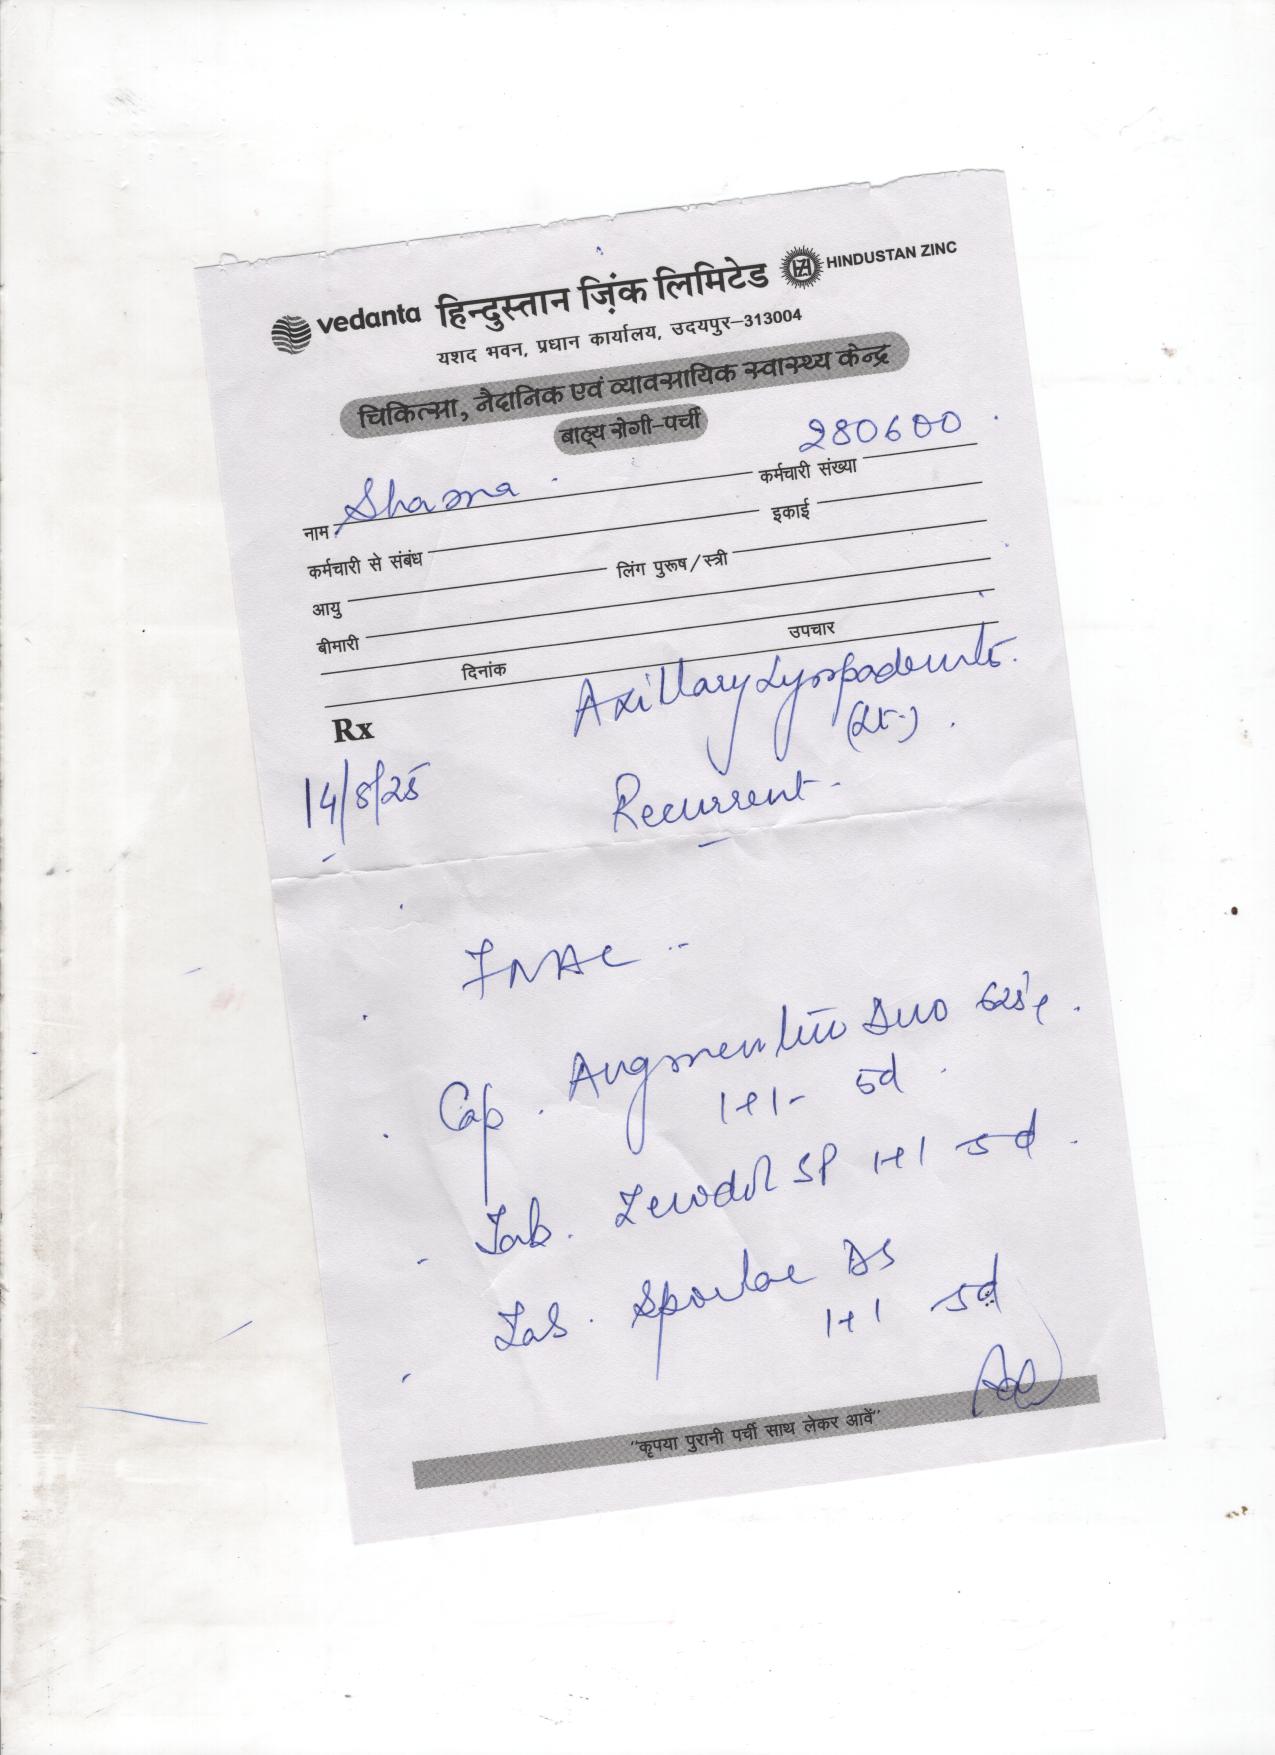 vedanta हिन्दुस्तान ज़िंक लिमिटेड HINDUSTAN ZINC
यशद भवन, प्रधान कार्यालय, उदयपुर-313004
चिकित्सा, नैदानिक एवं व्यावसायिक स्वास्थ्य केन्द्र
बाह्य रोगी-पर्ची
नाम Shama कर्मचारी संख्या 280600
कर्मचारी से संबंध इकाई
आयु लिंग पुरूष/स्त्री
बीमारी
दिनांक उपचार
Rx
14/8/25 Axillary Lympadenits.
Recurrent
FNAC
Cap. Augmentin Duo 625
1+1 5d
Tab. Zerodol SP 1+1 5d
Tab. Sporlac DS
1+1 5d
"कृपया पुरानी पर्ची साथ लेकर आवें"